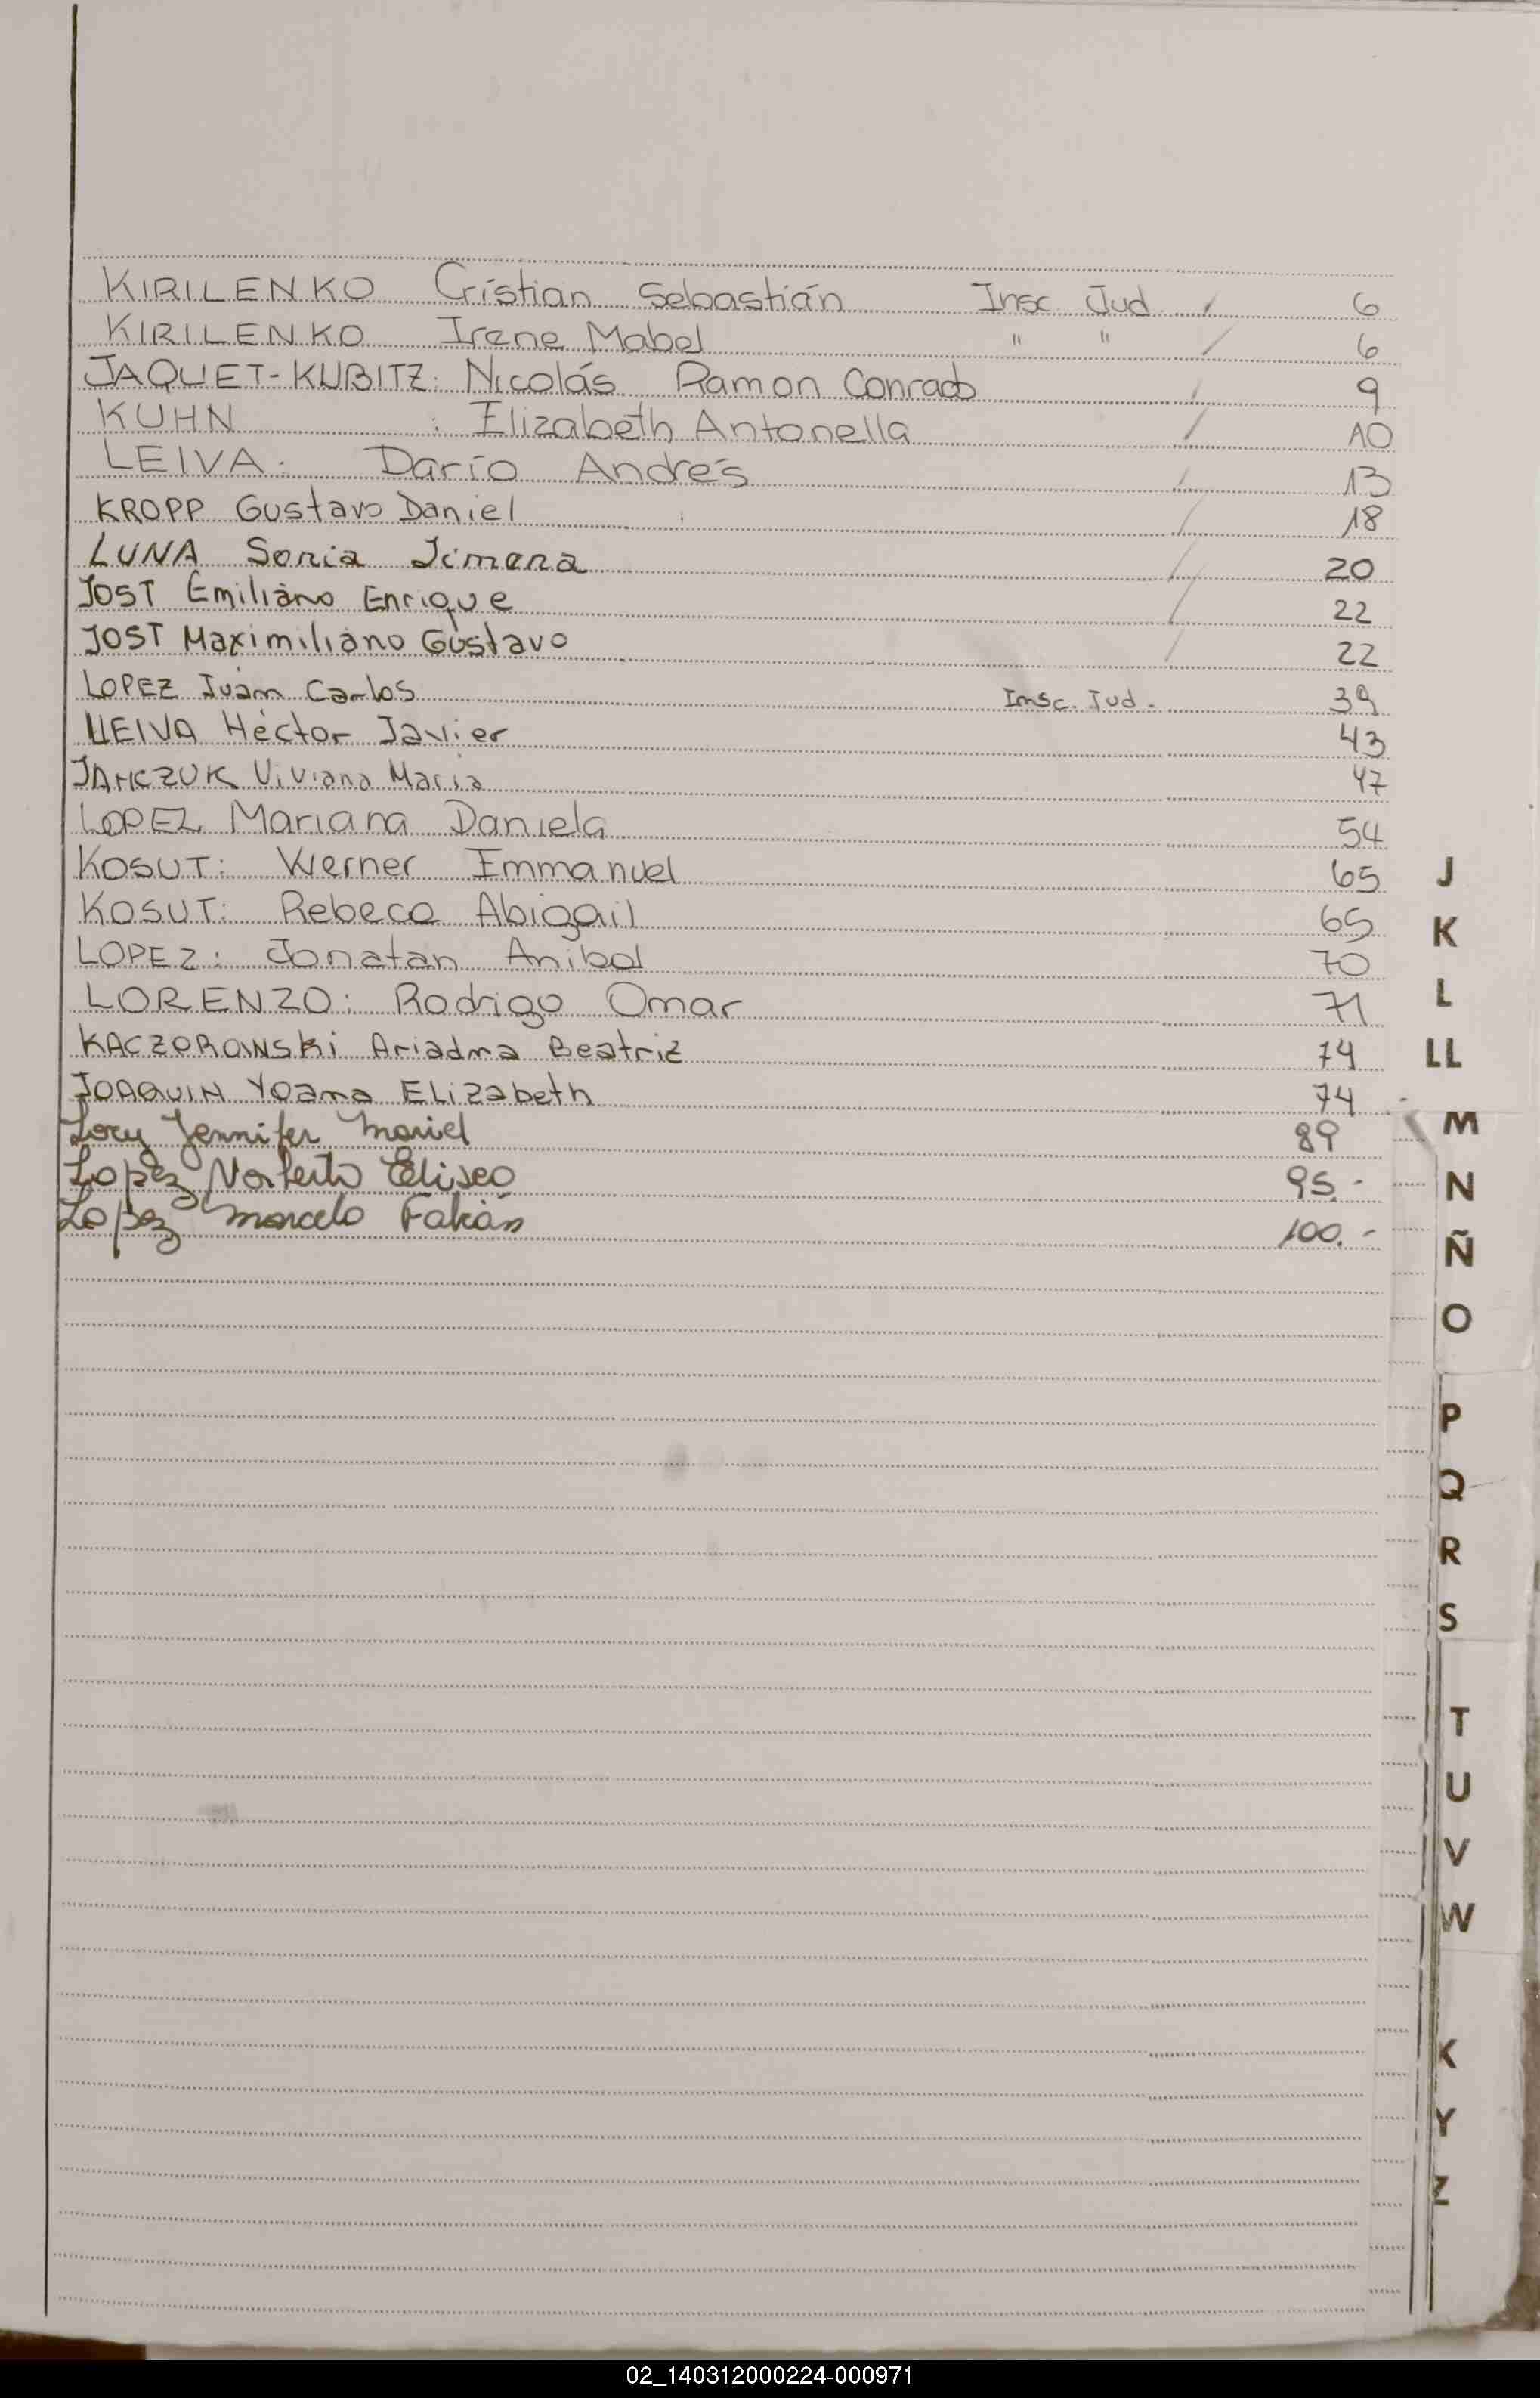 KIRILENKO Cristian Sebastián Insc. Jud. / 6
KIRILENKO Irene Mabel " " / 6
JAQUET-KUBITZ: Nicolás Ramon Conrado / 9
KUHN : Elizabeth Antonella / 10
LEIVA: Darío Andrés / 13
KROPP Gustavo Daniel / 18
LUNA Sonia Jimena / 20
JOST Emiliano Enrique / 22
JOST Maximiliano Gustavo / 22
LOPEZ Juan Carlos Insc. Jud. 39
LEIVA Héctor Javier 43
Viviana Maria 47
LOPEZ Mariana Daniela 54
KOSUT: Werner Emmanuel 65
KOSUT: Rebeca Abigail 65
LOPEZ: Jonatan Anibal 70
LORENZO: Rodrigo Omar 71
KACZOROWSKi Ariadna Beatriz 74
JOAQUIN Yoana ELizabeth 74
Jennifer Mariel 89
Lopez Norberto Eliseo 95.-
Lopez Marcelo Fabián 100.-
J
K
L
LL
M
N
Ñ
O
P
Q
R
S
T
U
V
W
X
Y
Z
02_140312000224-000971